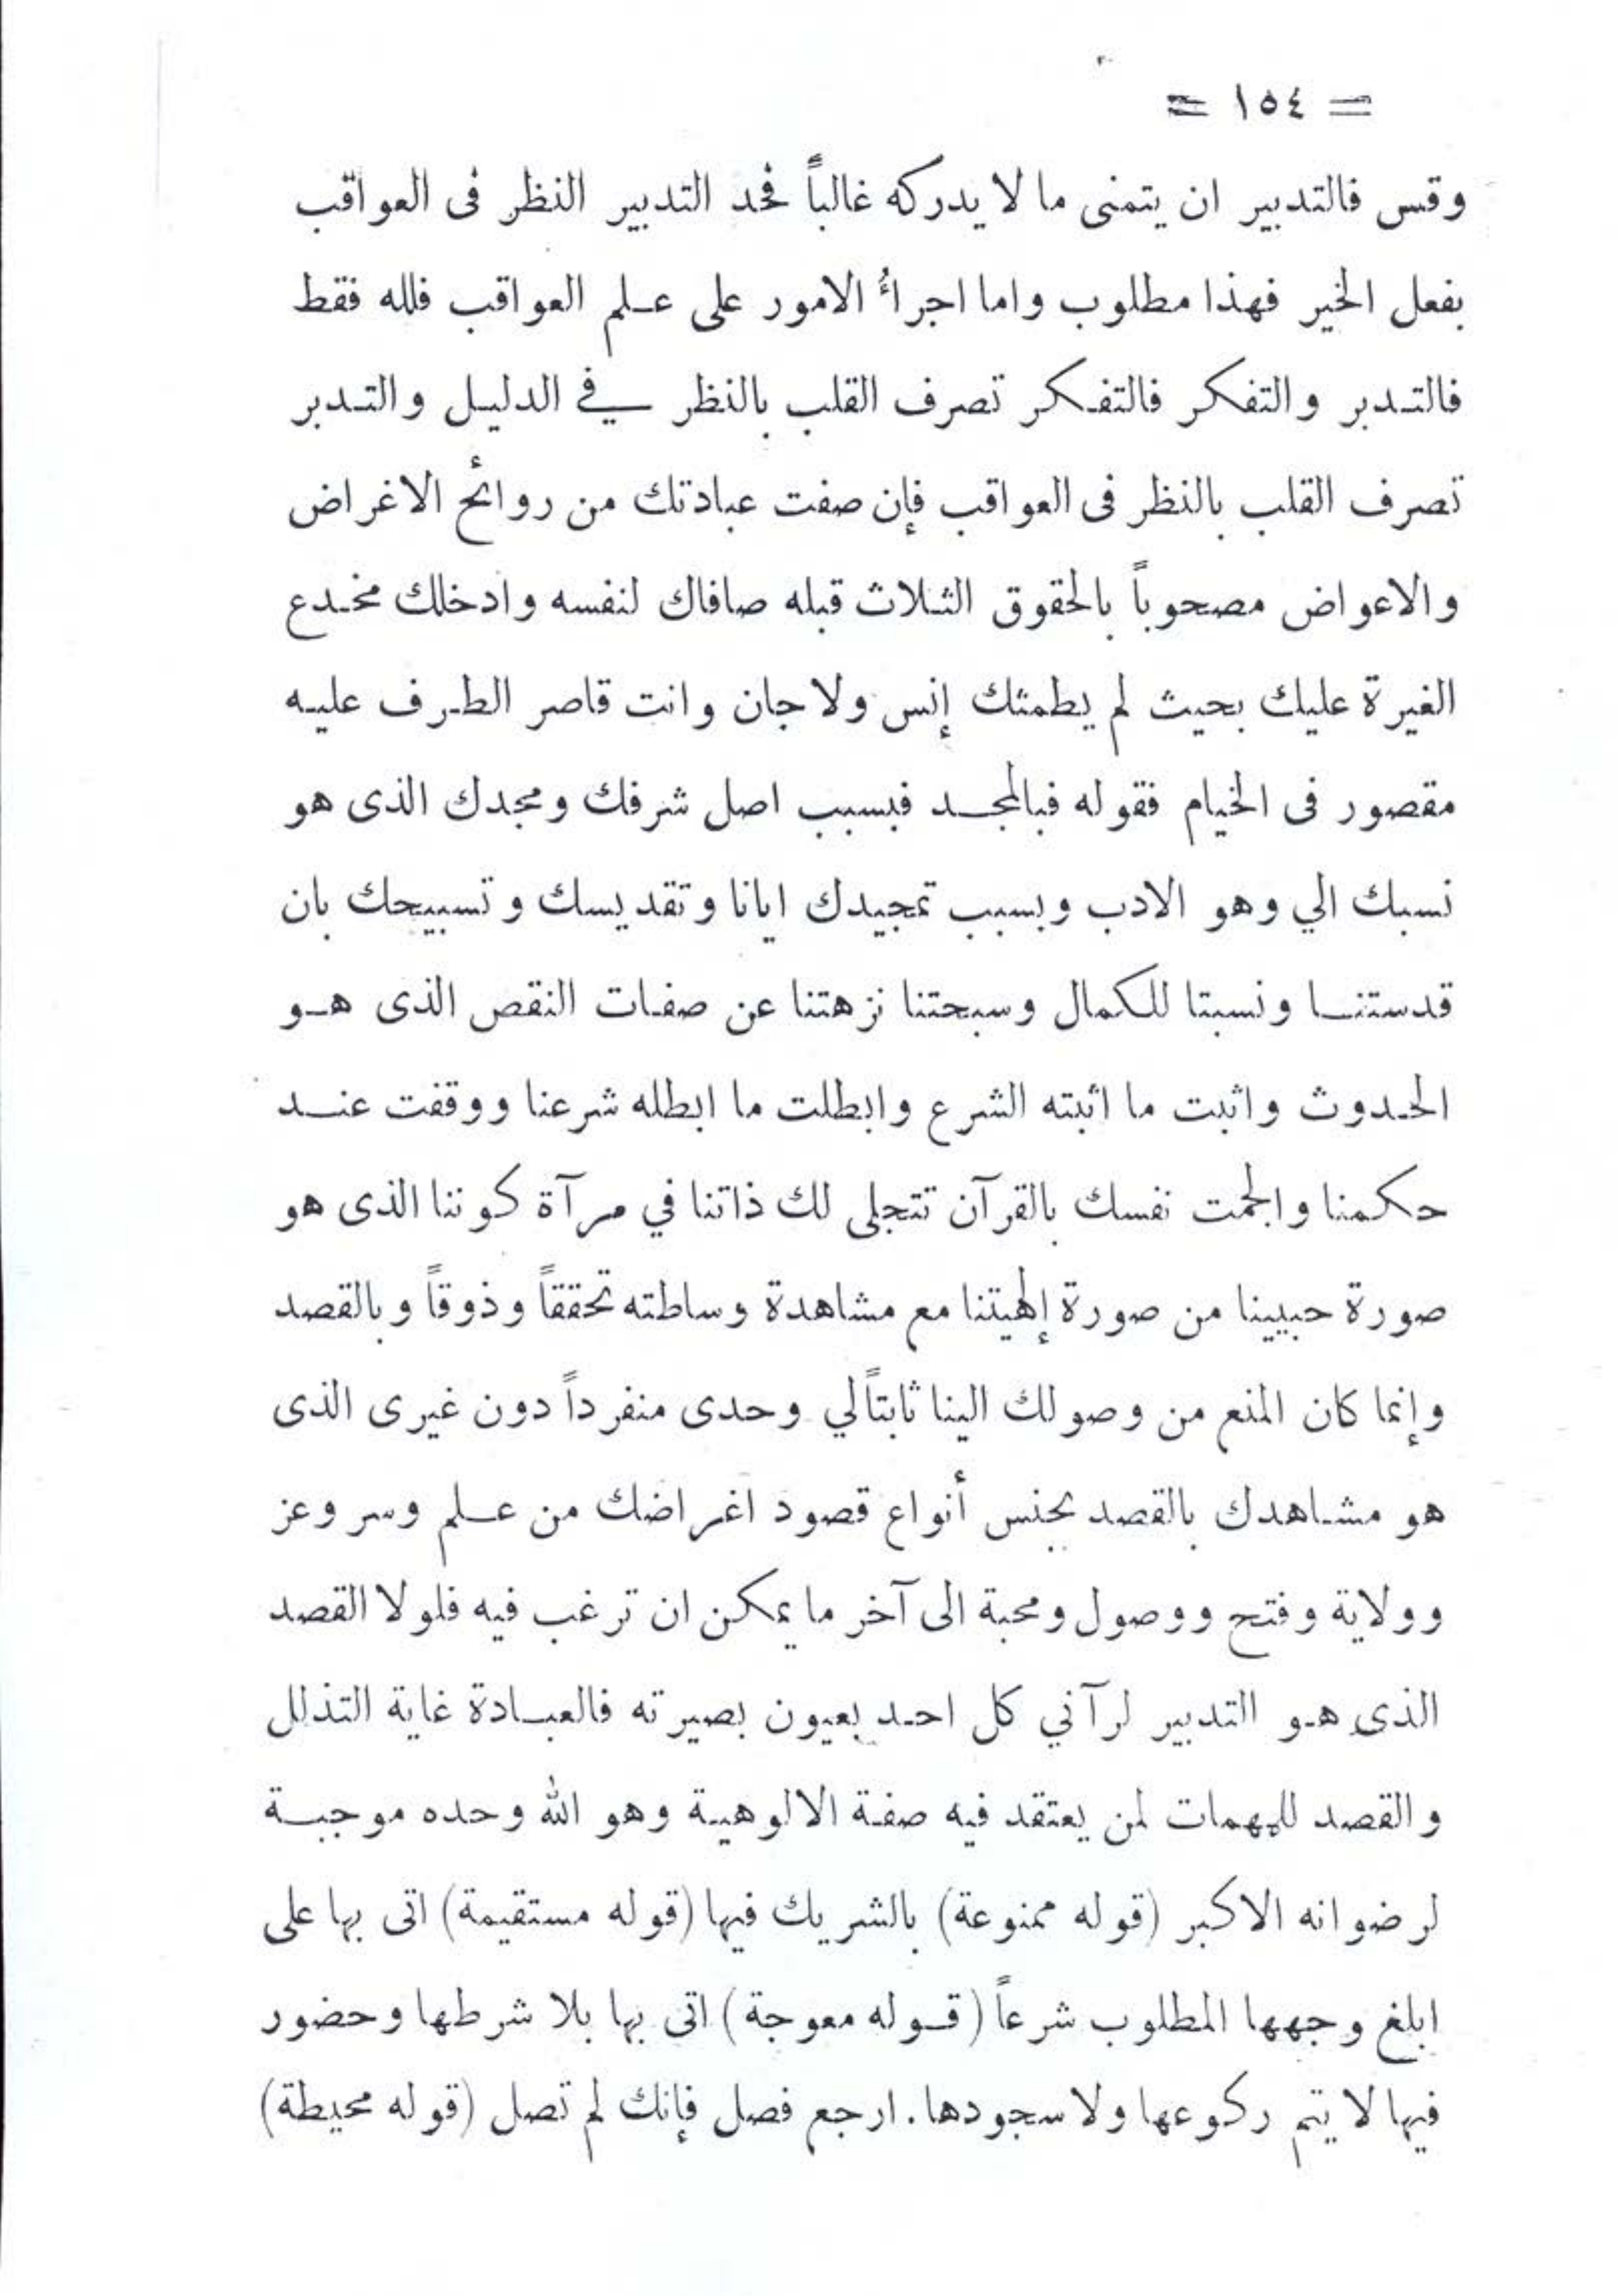 = ١٥٤ =
وقس فالتدبير ان يتمنى ما لا يدركه غالباً فحد التدبير النظر فى العواقب
بفعل الخير فهذا مطلوب واما اجراأ الامور على علم العواقب فلله فقط
فالتدبر والتفكر فالتفكر تصرف القلب بالنظر في الدليل والتدبر
تصرف القلب بالنظر فى العواقب فإن صفت عبادتك من روائح الاغراض
والاعواض مصحوباً بالحقوق الثلاث قبله صافاك لنفسه وادخلك مخدع
الغيرة عليك بحيث لم يطمثك إنس ولا جان وانت قاصر الطرف عليه
مقصور فى الخيام فقوله فبالمجد فبسبب اصل شرفك ومجدك الذى هو
نسبك الي وهو الادب وبسبب تمجيدك ايانا وتقديسك وتسبيحك بان
قدستنا ونسبتا للكمال وسبحتنا نزهتنا عن صفات النقص الذى هو
الحدوث واثبت ما اثبته الشرع وابطلت ما ابطله شرعنا ووقفت عند
حكمنا والجمت نفسك بالقرآن تتجلى لك ذاتنا في مرآة كوننا الذى هو
صورة حبيبنا من صورة إلهيتنا مع مشاهدة وساطته تحققاً وذوقاً وبالقصد
وإنما كان المنع من وصولك الينا ثابتاً لي وحدى منفرداً دون غيرى الذى
هو مشاهدك بالقصد بجنس أنواع قصود اغراضك من علم وسر وعز
وولاية وفتح ووصول ومحبة الى آخر ما يمكن ان ترغب فيه فلولا القصد
الذى هو التدبير لرآني كل احد بعيون بصيرته فالعبادة غاية التذلل
والقصد للمهمات لمن يعتقد فيه صفة الالوهية وهو الله وحده موجبة
لرضوانه الاكبر (قوله ممنوعة) بالشريك فيها (قوله مستقيمة) اتى بها على
ابلغ وجهها المطلوب شرعاً (قوله معوجة) اتى بها بلا شرطها وحضور
فيها لا يتم ركوعها ولا سجودها. ارجع فصل فإنك لم تصل (قوله محيطة)